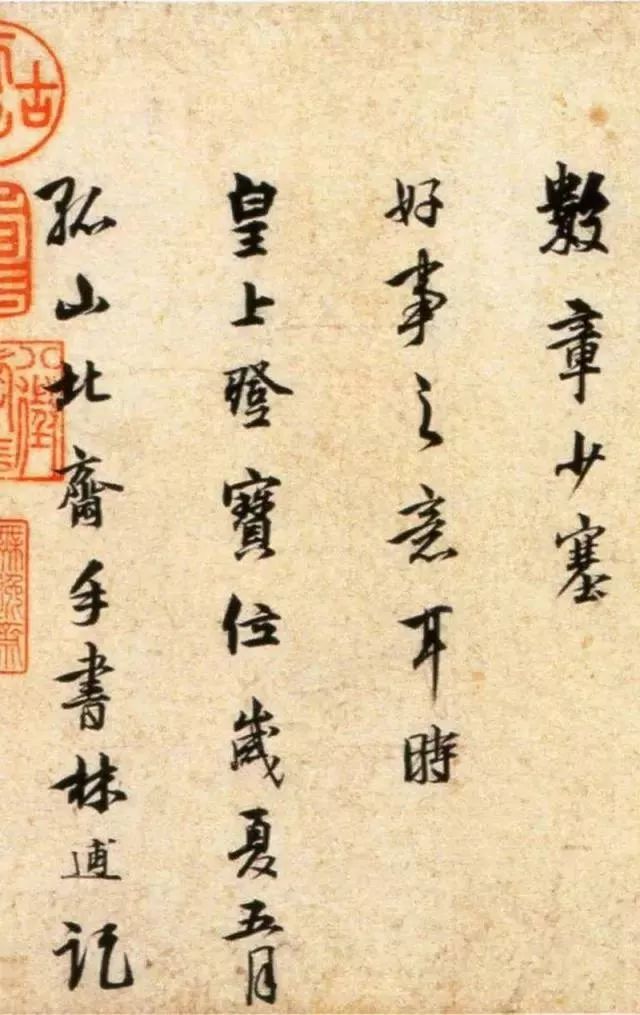 數章少塞
好事之意耳時
皇上登寶位歲夏五月
孤山北齋手書林逋記
古